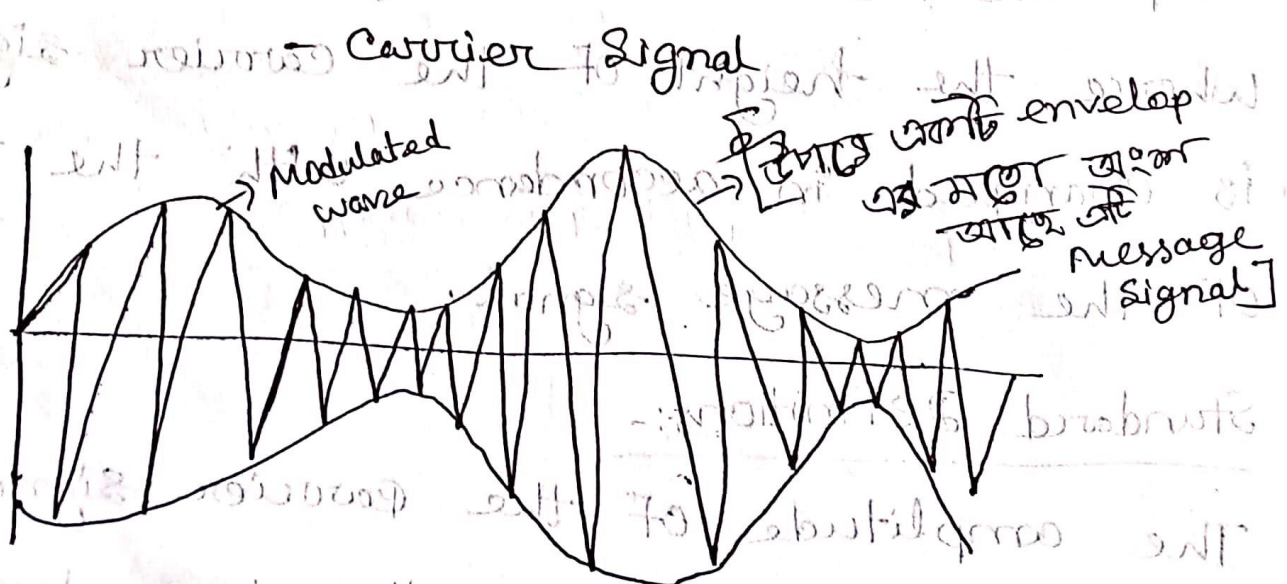 - Carrier Signal
Modulated
wave
[উপরে একটি envelop
এর মতো অংশ
আছে এটি
message
signal]